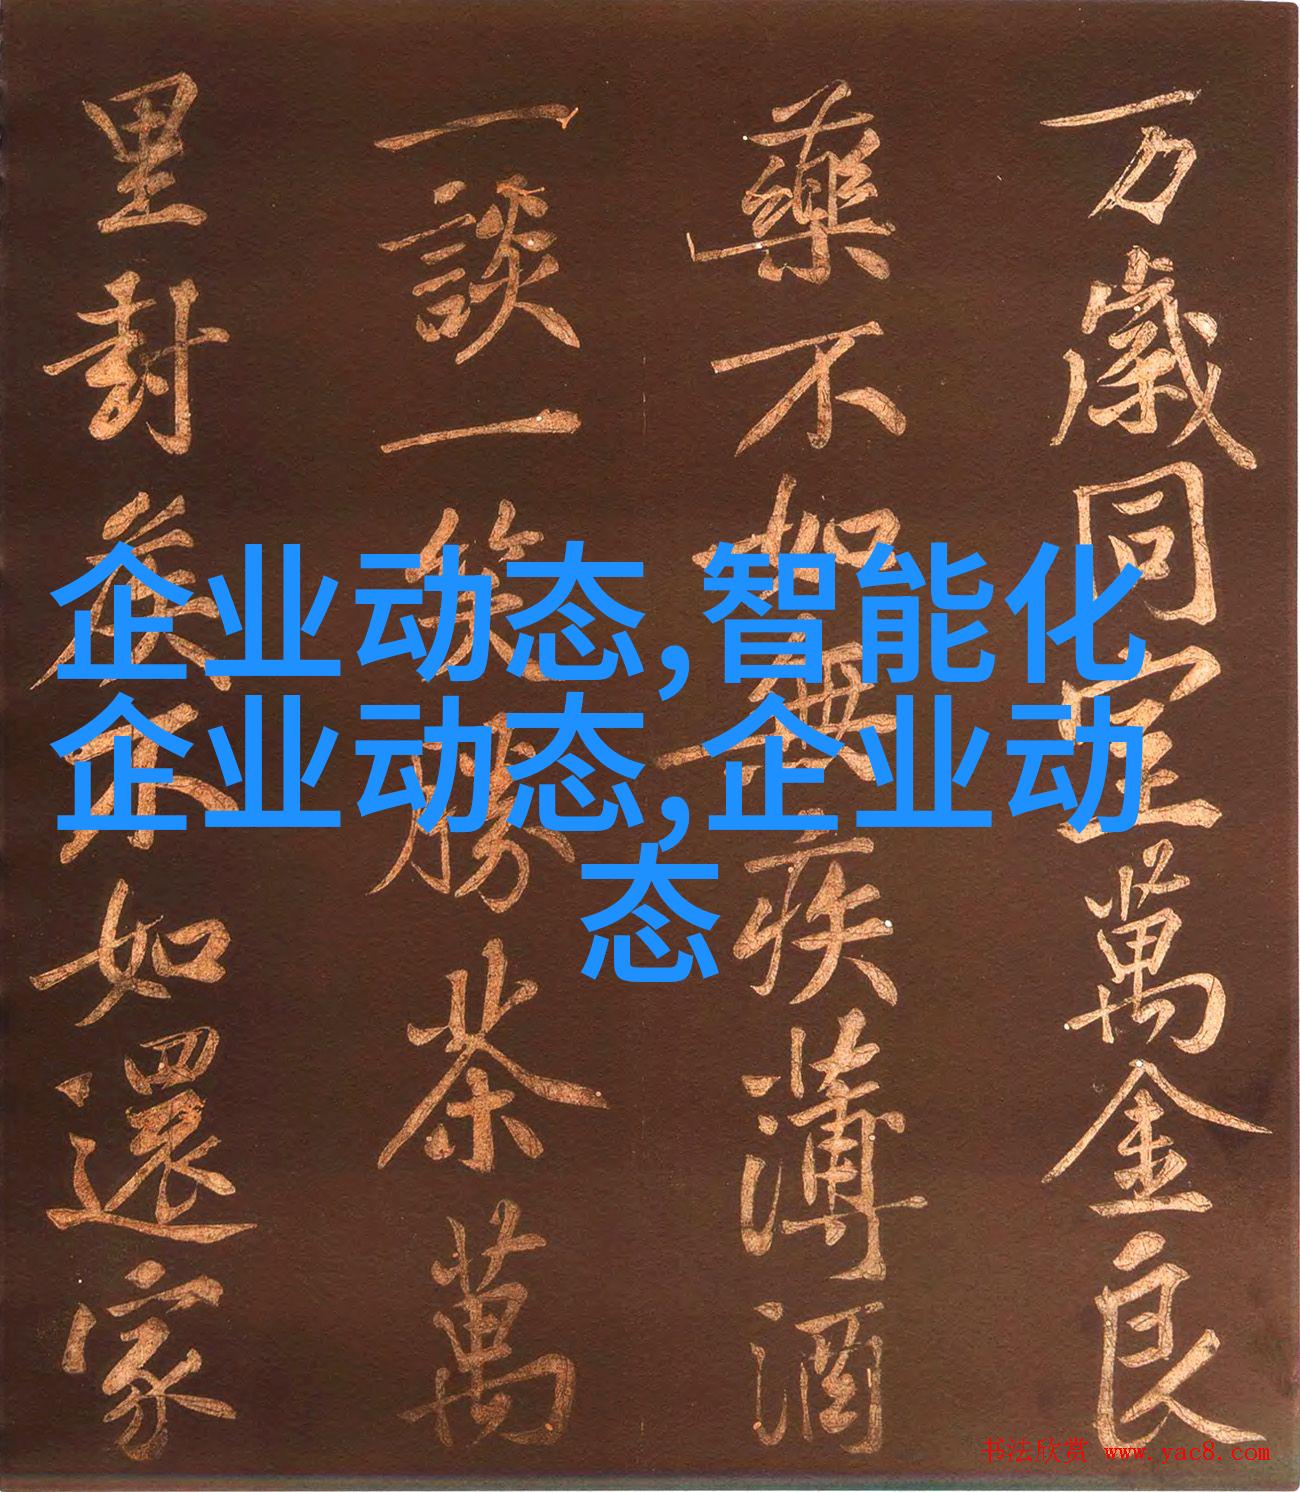 万歲同室萬金良
藥不如無疾薄酒
一談一笑勝茶萬
里封侯不如還家
企业动态,智能化
企业动态,企业动
态
书法欣赏 www.yac8.com